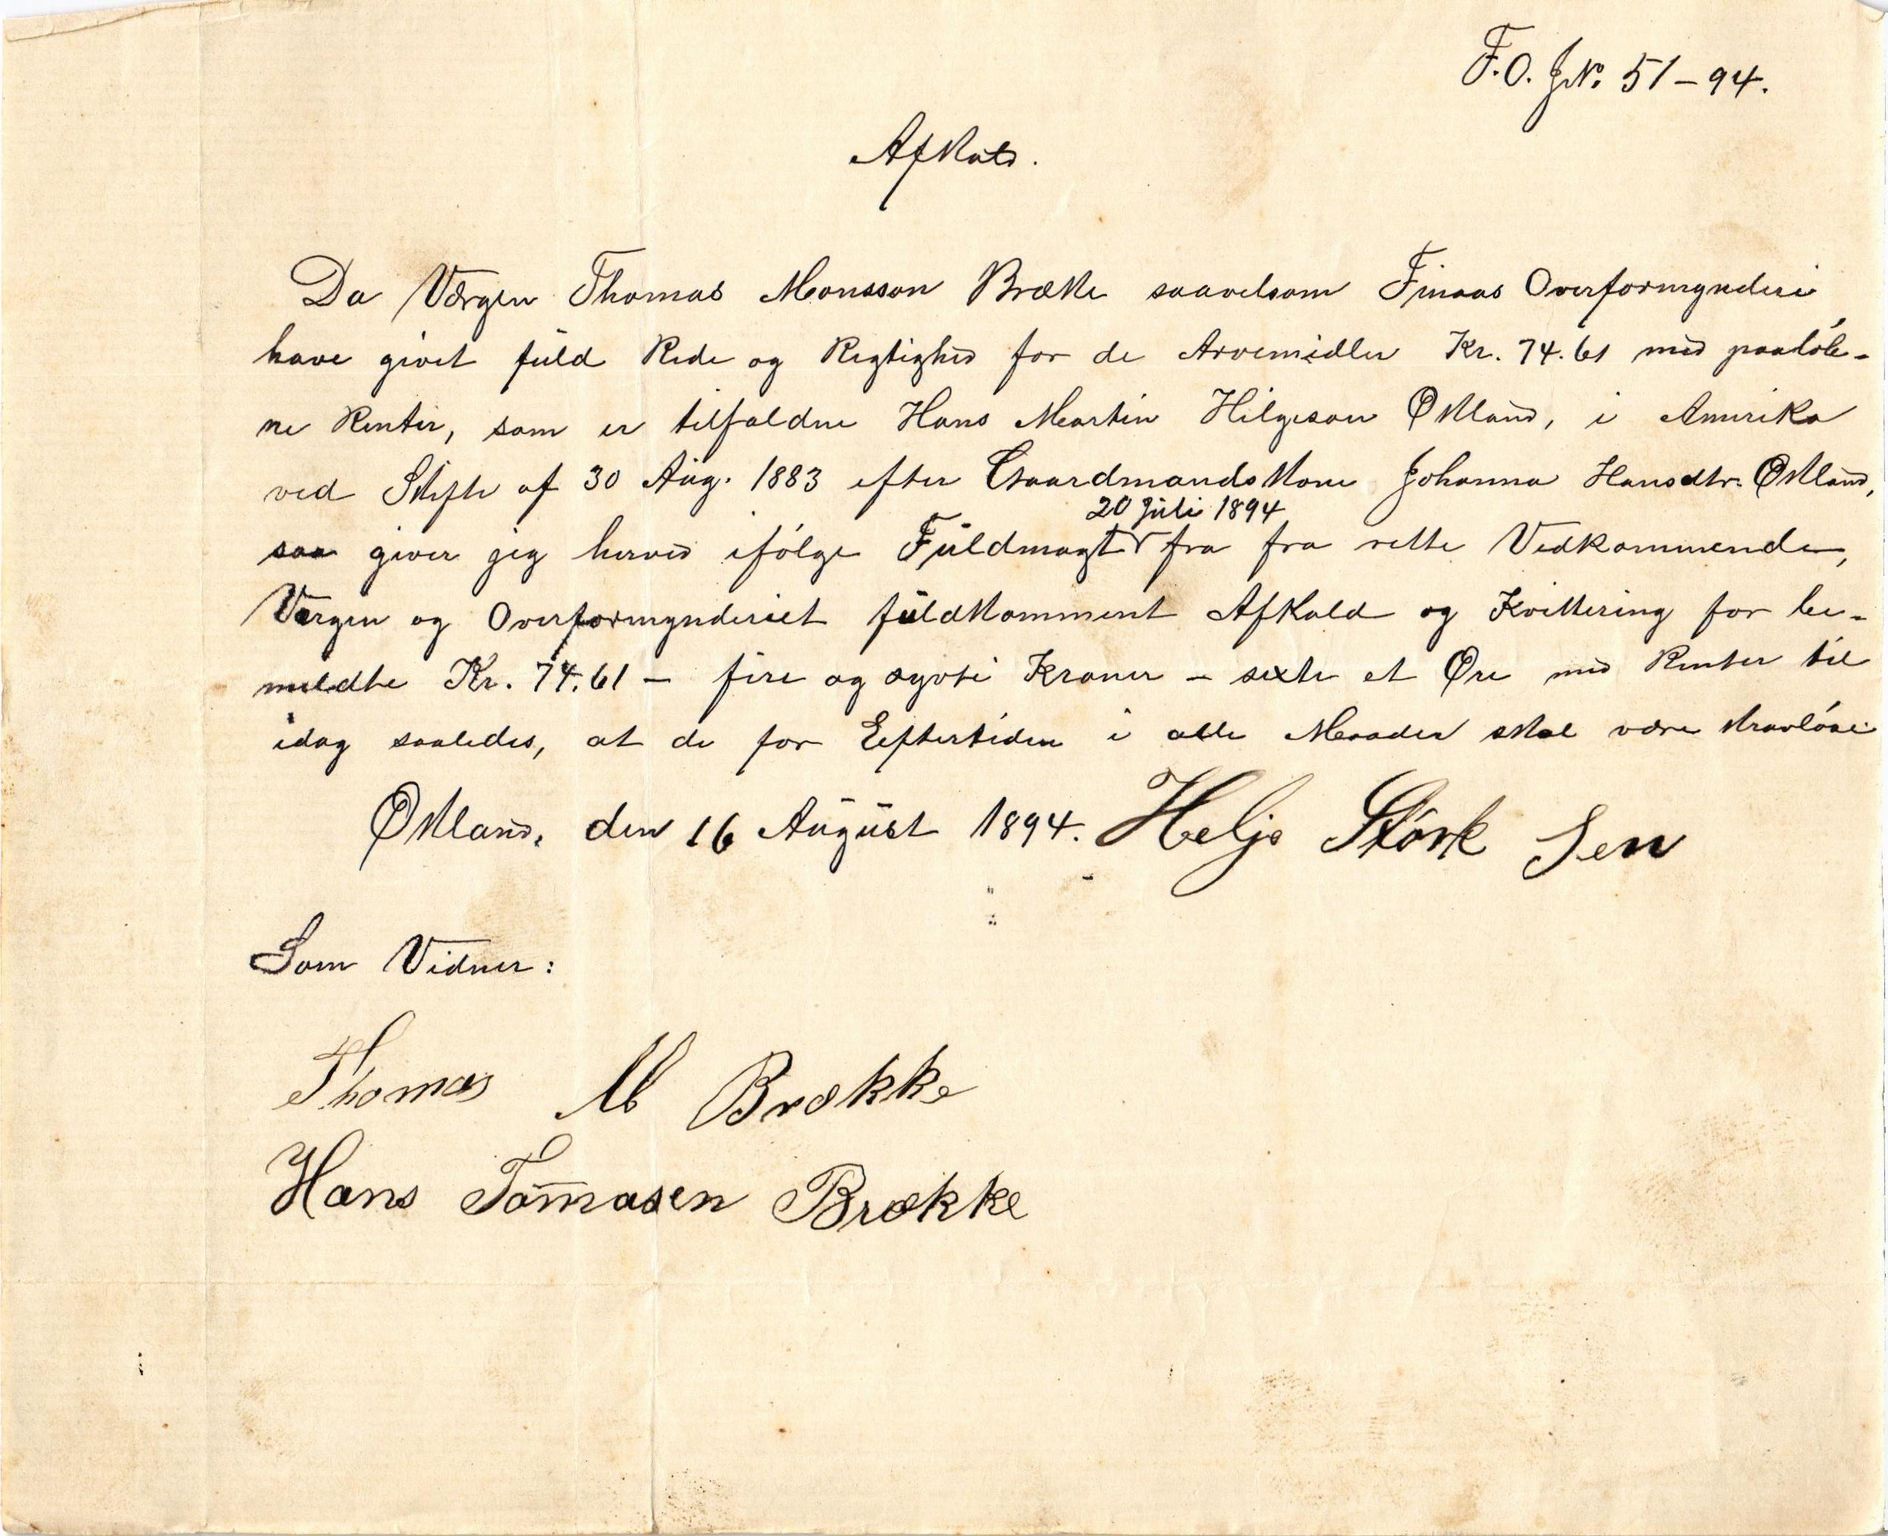 F.O. J№. 51-94.
Afkald.
Da Værgen Thomas Monsson Brække saavelsom Finaas Overformynderi
have givet fuld Rede og Rigtighed for de Arvemidler Kr. 74.61 med paaløb-
ne Renter, som er tilfaldne Hans Martin Helgeson Økland, i Amerika
ved Skifte af 30 Aug. 1883 efter Gaardmandskone Johanna Hansdtr. Økland,
20 Juli 1894
saa giver jeg herved ifølge Fuldmagt fra fra rette Vedkommende,
Værgen og Overformynderiet fuldkomment Afkald og Kvittering for be-
meldte Kr. 74.61 — fire og sytti Kroner — sexti et Øre med Renter til
idag saaledes, at de for Eeftertiden i alle Maader skal være kravløse
Økland, den 16 August 1894. Helje Størk Sen
Som Vidner:
Thomas M Brække
Hans Tommasen Brække